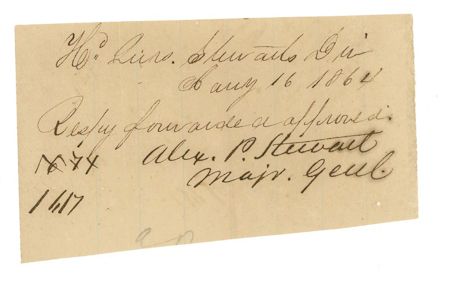 Hd Qurs. Stewarts Div
Jany 16 1864
Respy forwarded approved.
Alex. P. Stewart
Majr. Genl.
74
1617